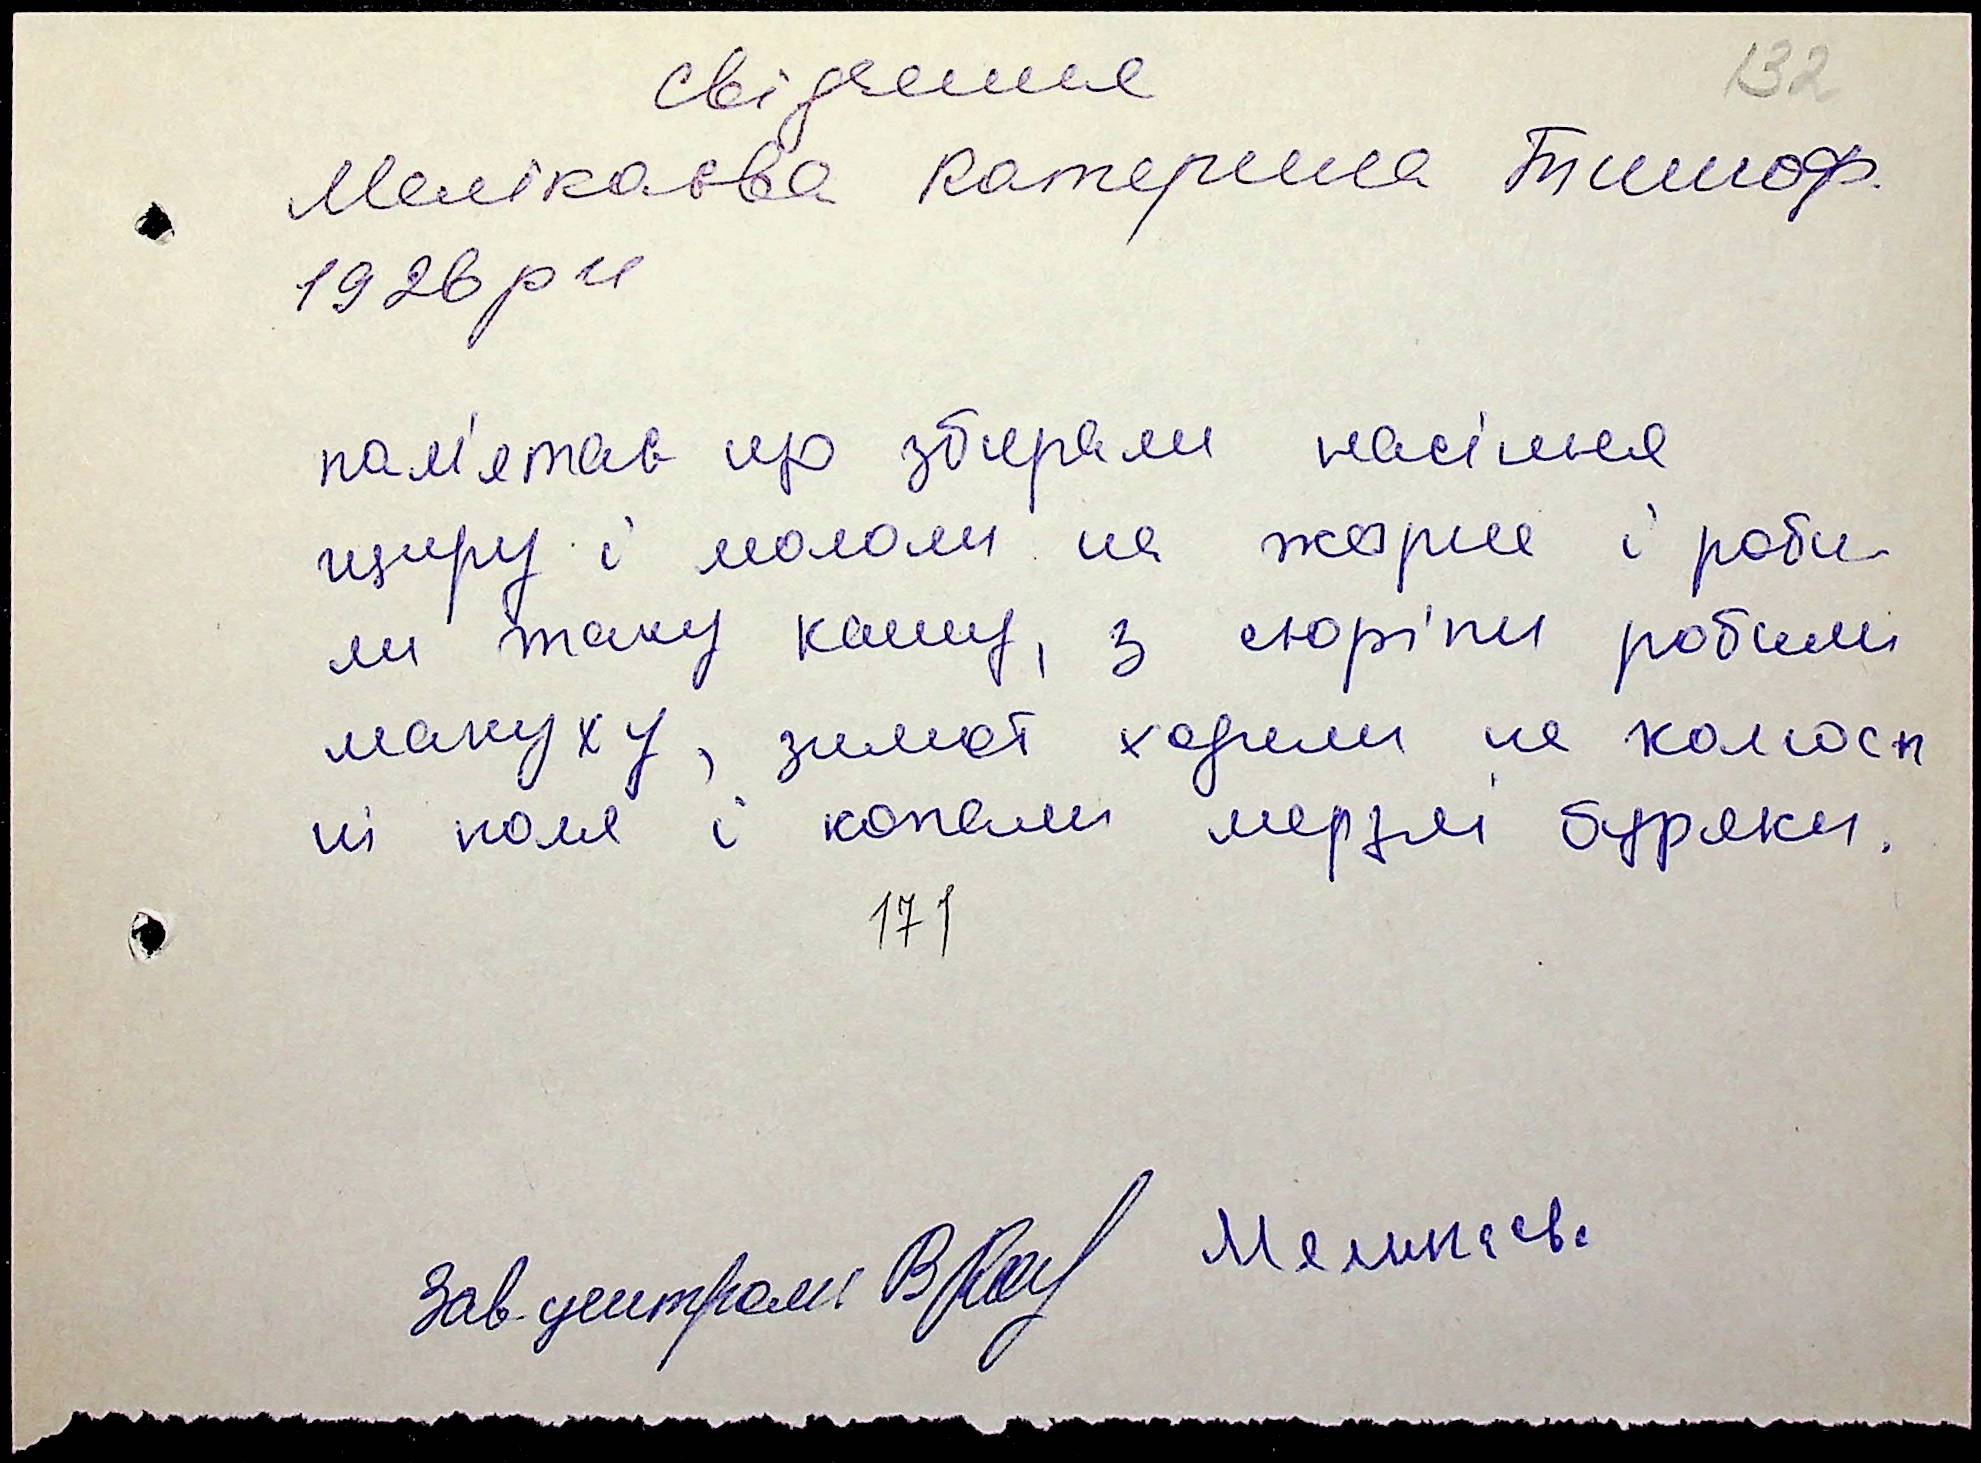 132
свідчення
Мелікаєва Катерина Тимоф.
1926 р н
пам'ятає що збирали насіння
щиру і мололи на жорна і роби
ли таку кашу, з сюріпи робили
макуху, зимой ходили на колгосп
ні поля і копали мерзлі буряки.
171
Зав. централі Меликаєва